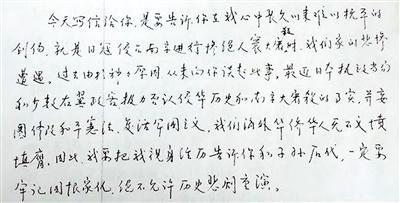 今天写信给你,是要告诉你在我心中长久以来难以抚平的
创伤,就是日寇侵占南京进行惨绝人寰大屠杀时,我们家的悲惨
遭遇。过去由于种种原因从未向你谈起此事。最近日本执政当局
和少数右翼政客极力否认侵华历史和南京大屠杀的事实,并妄
图修改和平宪法、复活军国主义,我们海外华侨华人无不义愤
填膺。因此,我要把我亲身经历告诉你和子孙后代,一定要
牢记国恨家仇,绝不允许历史悲剧重演。